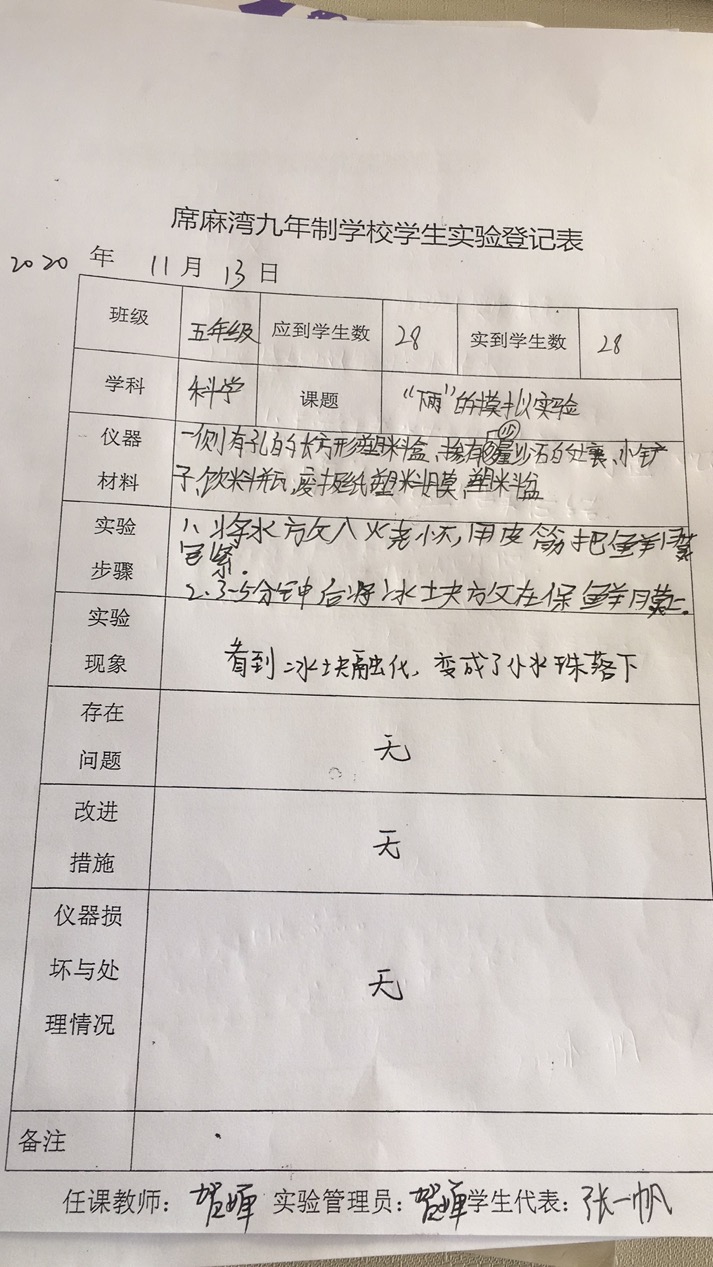 席麻湾九年制学校学生实验登记表
2020 年 11月 13日
班级 五年级 应到学生数 28 实到学生数 28
学科 科学 课题 “下雨”的模拟实验
仪器 一侧有孔的长方形塑料盒、掺有少量沙石的土壤、小铲
材料 子、饮料瓶、废报纸塑料膜、塑料盆
实验 1、将水放入火老小不,用皮筋把鲜膜
宅紧.
步骤 2、3-5分钟后将冰土夬放在保鲜膜上.
实验
现象 看到冰块融化,变成了小水珠落下
存在
问题 无
改进
措施 无
仪器损
坏与处 无
理情况
备注
任课教师: 贺婵 实验管理员: 贺婵 学生代表: 张一帆